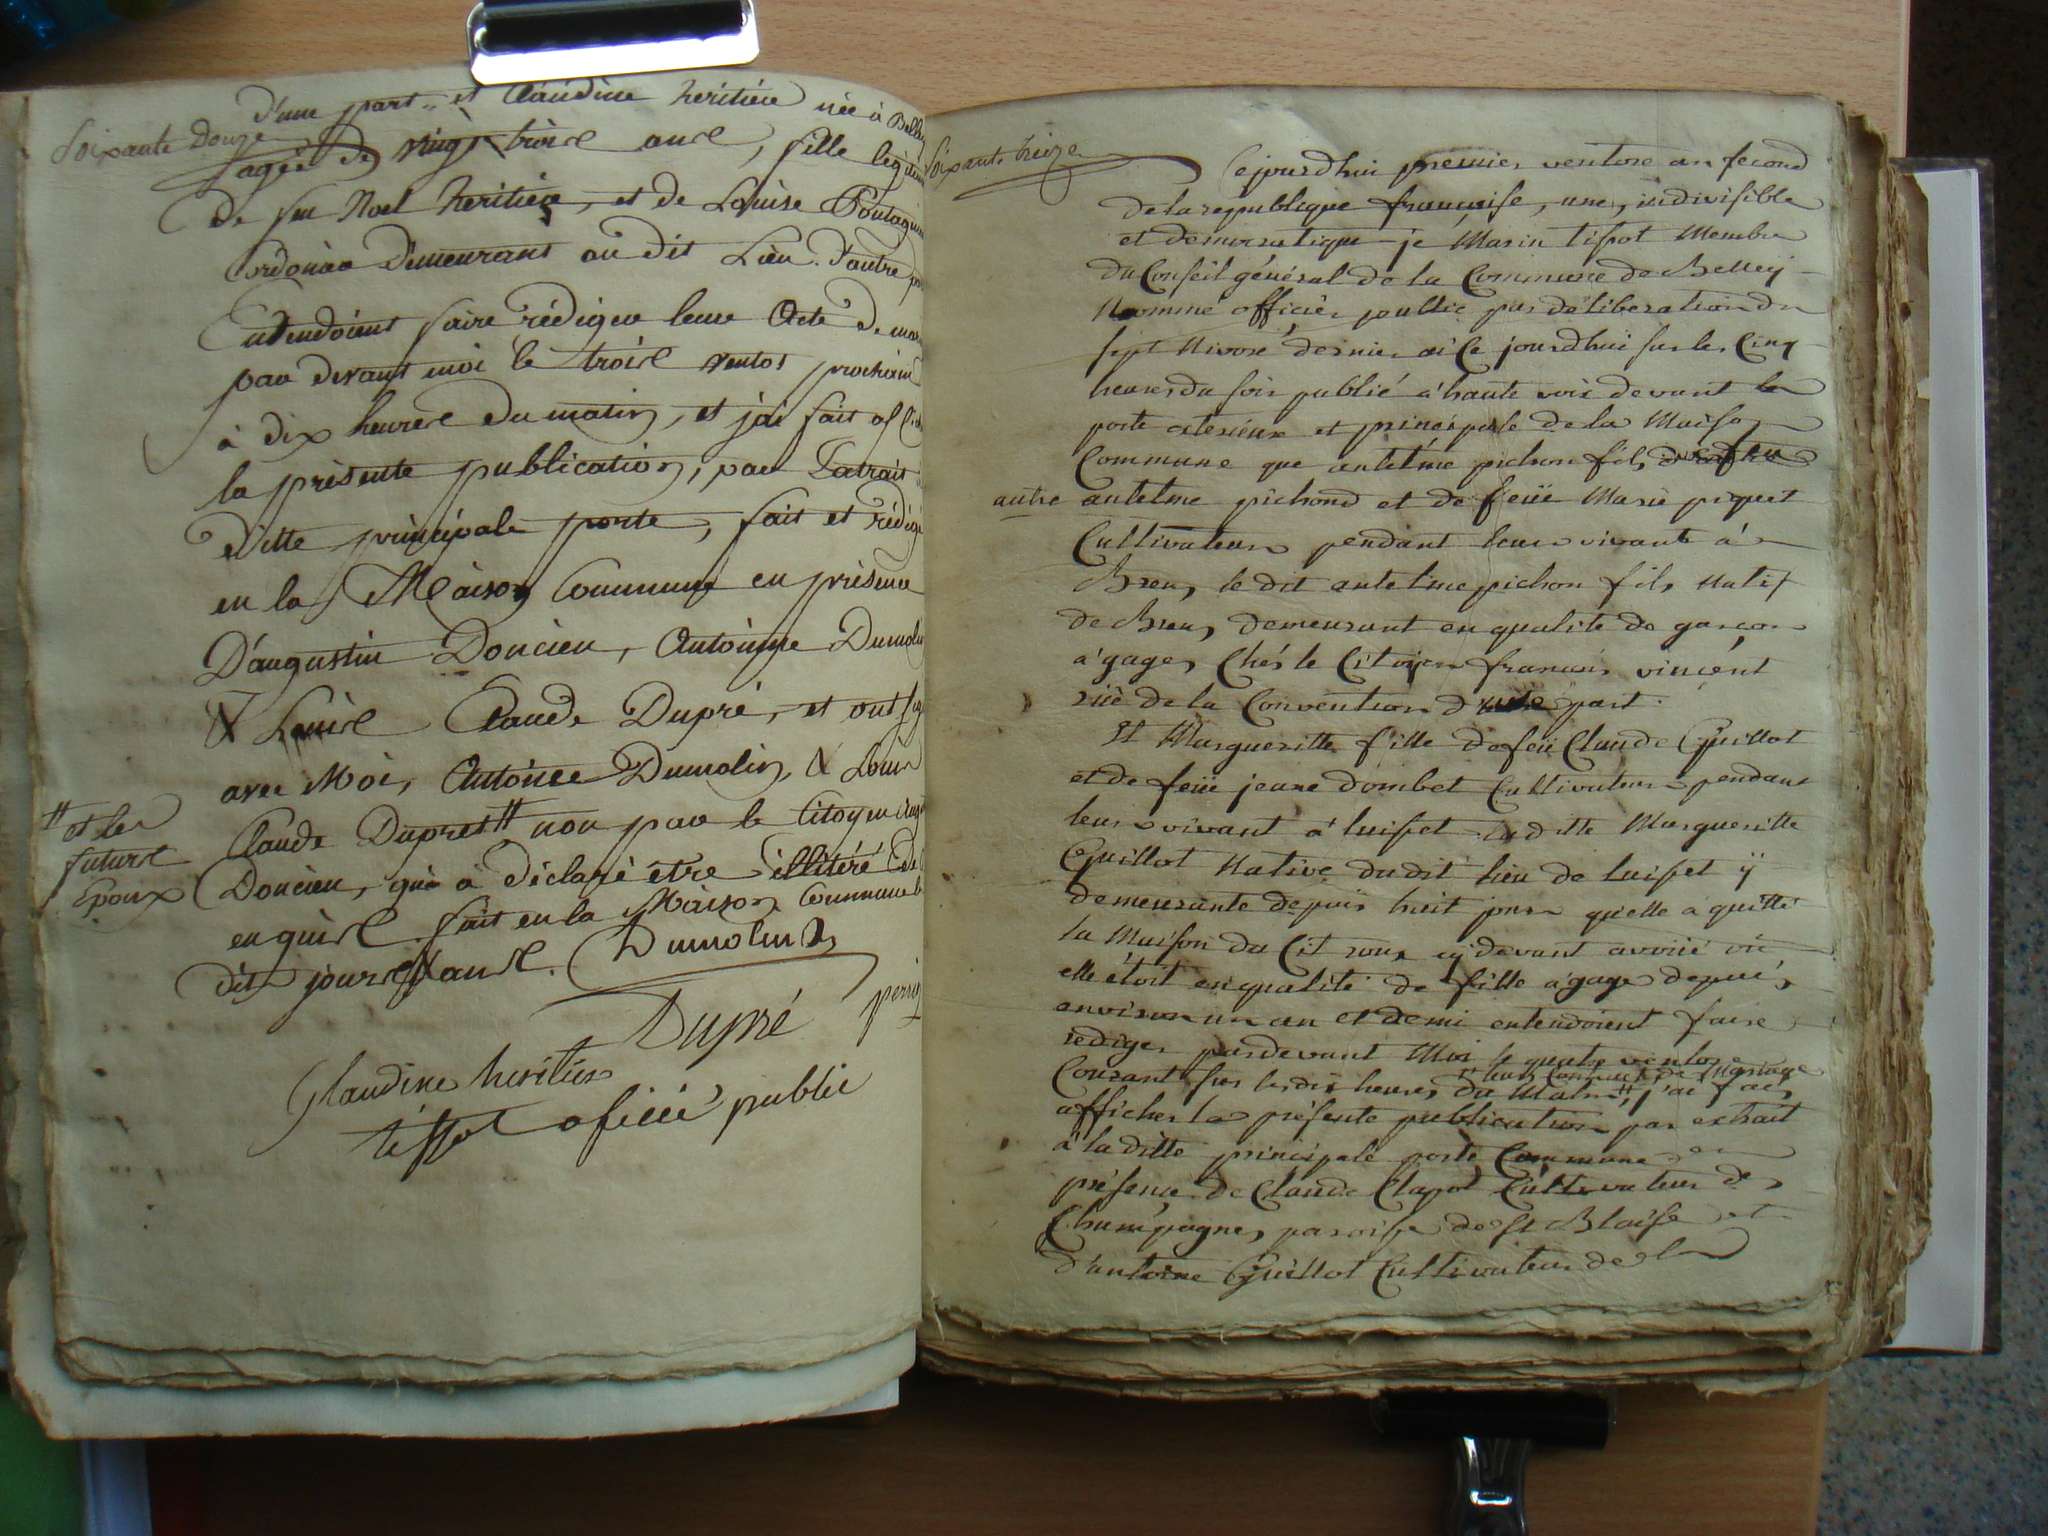 Soixante Douze
d'une part et Claudine heritiere née à Belley
agée de vingt trois ans, fille legitime
de feu Noel heritiere, et de Louise
demeurant au dit Lieu d'autre part
Entendoient faire rédiger leur Acte de
par devant moi le trois ventos prochain
à dix heures du matin, et j'ai fait
la présente publication, par Extrait
ditte principale porte, fait et rédigé
en la Maison Commune en présence
D'augustin Doncieu, Antoinne Dumolin
& Louis Claude Dupré, et ont
avec Moi, Antoinee Dumolin & Louis
Claude Dupres # non par le Citoyen
# et les
futurs
Epoux
Doncieu, qui à déclaré être illitéré de
enquis fait en la Maison Commune
dits jours & ans. Dumolin
Dupré
Claudine heritier
tissot oficié public
Soixante treize
Cejourdhui premier ventose an second
de la republique françaisse, une, indivisible
et democratique je Marin tissot Membre
du Conseil général de la Commune de Belley
Nommé officier public par déliberation du
sept Nivose dernier ai Ce jourdhui sur les Cinq
heures du soir publié a haute voix devant la
porte exterieure et principale de la Maison
Commune que antelme pichon fils
autre antelme pichond et de feüe Marie piquet
Cultivateurs pendant leurs vivants à
Bren, le dit antelme pichon fils Natif
de Bren, demeurant en qualité de garçon
a gages Chés le Citoyen francois vincent
rüe de la Convention d'une part.
Et Margueritte fille de feü Claude Guillot
et de feüe jeane dombet Cultivateurs pendant
leurs vivant a luisset ladite Margueritte
Guillot Native du dit lieu de luisset ÿ
demeurante depuis huit jours quelle a quitté
la Maison du Cit roux cÿ devant avoüé où
elle étoit en qualité de fille a gage depuis
environ un an et demi entendoient faire
rediger pardevant Moi le quatre ventose
# leur Contract de Mariage
Courant sur les dix heures du Matin #, j'ai fait
afficher la présente publication par extrait
à la ditte principale porte Commune en
présence de Claude Clapot Cultivateur de
Champagne, paroisse de St Blaise et
d'antoine Guillot Cultivateur de